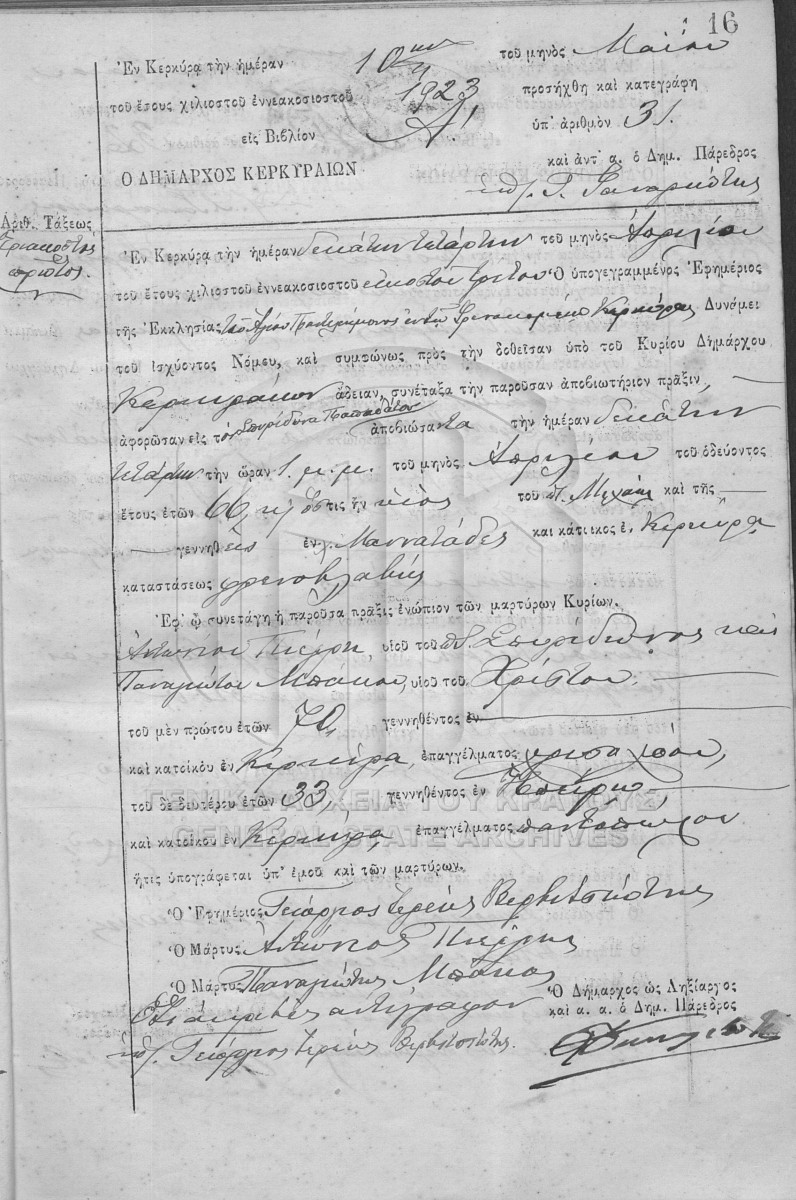 16
Ἐν Κερκύρᾳ τὴν ἡμέραν 10ην τοῦ μηνὸς Μαΐου
τοῦ ἔτους χιλιοστοῦ ἐννεακοσιοστοῦ 1923 προσήχθη καὶ κατεγράφη
εἰς Βιβλίον Α΄. ὑπ᾽ ἀριθμὸν 31.
Ο ΔΗΜΑΡΧΟΣ ΚΕΡΚΥΡΑΙΩΝ
καὶ ἀντ᾽ α. ὁ Δημ. Πάρεδρος
Ἀριθ. Τάξεως
Τριακοστὸς
πρῶτος.
Ἐν Κερκύρᾳ τὴν ἡμέραν δεκάτην τετάρτην τοῦ μηνὸς Ἀπριλίου
τοῦ ἔτους χιλιοστοῦ ἐννεακοσιοστοῦ εἰκοστοῦ τρίτου Ὁ ὑπογεγραμμένος Ἐφημέριος
τῆς Ἐκκλησίας τοῦ Ἁγίου Παντελεήμονος ἐν τῷ Φρενοκομείῳ Κερκύρας Δυνάμει
τοῦ ἰσχύοντος Νόμου, καὶ συμφώνως πρὸς τὴν δοθεῖσαν ὑπὸ τοῦ Κυρίου Δημάρχου
Κερκυραίων ἄδειαν, συνέταξα τὴν παροῦσαν ἀποβιωτήριον πρᾶξιν,
ἀφορῶσαν εἰς τὸν Σπυρίδωνα ἀποβιώσαντα τὴν ἡμέραν δεκάτην
τετάρτην τὴν ὥραν 1. μ. μ. τοῦ μηνὸς Ἀπριλίου τοῦ ὁδεύοντος
ἔτους ἐτῶν 66, ὅστις ἦν υἱὸς τοῦ Μιχαὴλ καὶ τῆς
γεννηθεὶς ἐν Μαννατάδες καὶ κάτοικος ἐν Κερκύρᾳ
καταστάσεως φρενοβλαβής
Ἐφ᾽ ᾧ συνετάγη ἡ παροῦσα πρᾶξις ἐνώπιον τῶν μαρτύρων Κυρίων.
Ἀντωνίου Πιέρρη, υἱοῦ τοῦ Σπυρίδωνος καὶ
Παναγιώτου Μπάκου, υἱοῦ τοῦ Χρίστου.
τοῦ μὲν πρώτου ἐτῶν 70, γεννηθέντος ἐν
καὶ κατοίκου ἐν Κερκύρᾳ, ἐπαγγέλματος
τοῦ δὲ δευτέρου ἐτῶν 33, γεννηθέντος ἐν Ἠπείρῳ
καὶ κατοίκου ἐν Κερκύρᾳ, ἐπαγγέλματος παντοπώλου
ἥτις ὑπογράφεται ὑπ᾽ ἐμοῦ καὶ τῶν μαρτύρων.
Ὁ Ἐφημέριος Γεώργιος Ἱερεὺς Βερβιτσιώτης
Ὁ Μάρτυς Ἀντώνιος Πιέρρης
Ὁ Μάρτυς Παναγιώτης Μπάκος
Ὁ Δήμαρχος ὡς Ληξίαρχος
καὶ α. α. ὁ Δημ. Πάρεδρος
Ὅτι ἀκριβὲς ἀντίγραφον
Γεώργιος Ἱερεὺς Βερβιτσιώτης.
ΓΕΝΙΚΑ ΑΡΧΕΙΑ ΤΟΥ ΚΡΑΤΟΥΣ
GENERAL STATE ARCHIVES